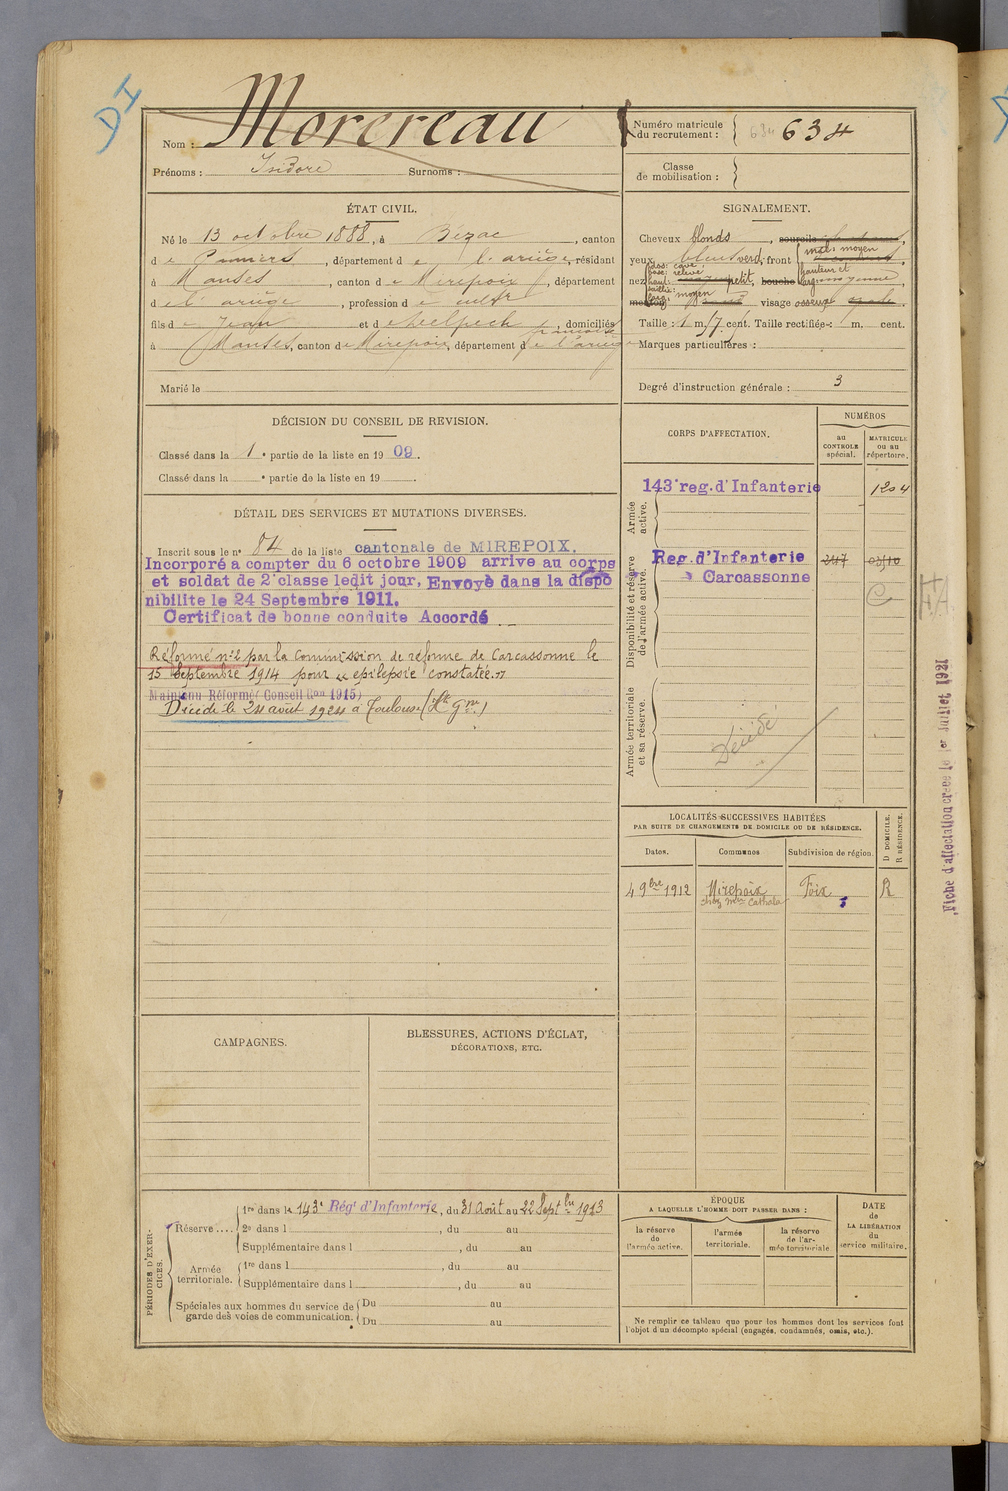 DI
Nom : Morereau
Prénoms : Isidore Surnoms :
Numéro matricule du recrutement : 634 634
Classe de mobilisation :
ÉTAT CIVIL.
Né le 13 octobre 1888, à Bézac, canton
de Pamiers, département de l'ariège, résidant
à Manses, canton de Mirepoix, département
de l'ariège, profession de cultr
fils de Jean et de Delpech françoise, domiciliés
à Manses, canton de Mirepoix, département de l'ariège
Marié le
SIGNALEMENT.
Cheveux blonds, sourcils
yeux bleus verd, front incl: moyen
hauteur et
nez dos: cave base: relevé haut: petit, bouche larg: moyenne
saillie: larg: moyen
menton visage osseux ovale
Taille : 1 m. 57 cent. Taille rectifiée : m. cent.
Marques particulières :
Degré d'instruction générale : 3
DÉCISION DU CONSEIL DE REVISION.
Classé dans la 1e partie de la liste en 1909.
Classé dans la e partie de la liste en 19 .
CORPS D'AFFECTATION.
NUMÉROS
au CONTROLE spécial.
MATRICULE ou au répertoire.
Armée active.
143e reg. d'Infanterie 1204
Disponibilité et réserve de l'armée active.
Reg. d'Infanterie 347
Carcassonne
C
Armée territoriale et sa réserve.
Décédé
DÉTAIL DES SERVICES ET MUTATIONS DIVERSES.
Inscrit sous le n° 84 de la liste cantonale de MIREPOIX.
Incorporé a compter du 6 octobre 1909 arrive au corps
et soldat de 2e classe ledit jour, Envoyé dans la dispo
nibilite le 24 Septembre 1911.
Certificat de bonne conduite Accordé
Réformé n°2 par la Commission de réforme de Carcassonne le
15 Septembre 1914 pour "epilepsie constatée."
Maintenu Réformé (Conseil Ron 1915)
Décédé le 24 août 1924 à Toulouse (Hte Gne)
LOCALITÉS SUCCESSIVES HABITÉES
PAR SUITE DE CHANGEMENTS DE DOMICILE OU DE RÉSIDENCE.
D DOMICILE.
R RÉSIDENCE.
Dates. Communes Subdivision de région.
4 9bre 1912 Mirepoix Foix R
chez Mme Cathala
Fiche d'affectation créée le 1er Juillet 1921
CAMPAGNES.
BLESSURES, ACTIONS D'ÉCLAT,
DÉCORATIONS, ETC.
PÉRIODES D'EXERCICES.
Réserve....
1re dans le 143e Régt d'Infanterie, du 31 Août au 22 Septbre 1913
2e dans l , du au
Supplémentaire dans l , du au
Armée territoriale.
1re dans l , du au
Supplémentaire dans l , du au
Spéciales aux hommes du service de garde des voies de communication.
Du au
Du au
ÉPOQUE
A LAQUELLE L'HOMME DOIT PASSER DANS :
la réserve de l'armée active.
l'armée territoriale.
la réserve de l'armée territoriale
DATE de LA LIBÉRATION du service militaire.
Ne remplir ce tableau que pour les hommes dont les services font
l'objet d'un décompte spécial (engagés, condamnés, omis, etc.).